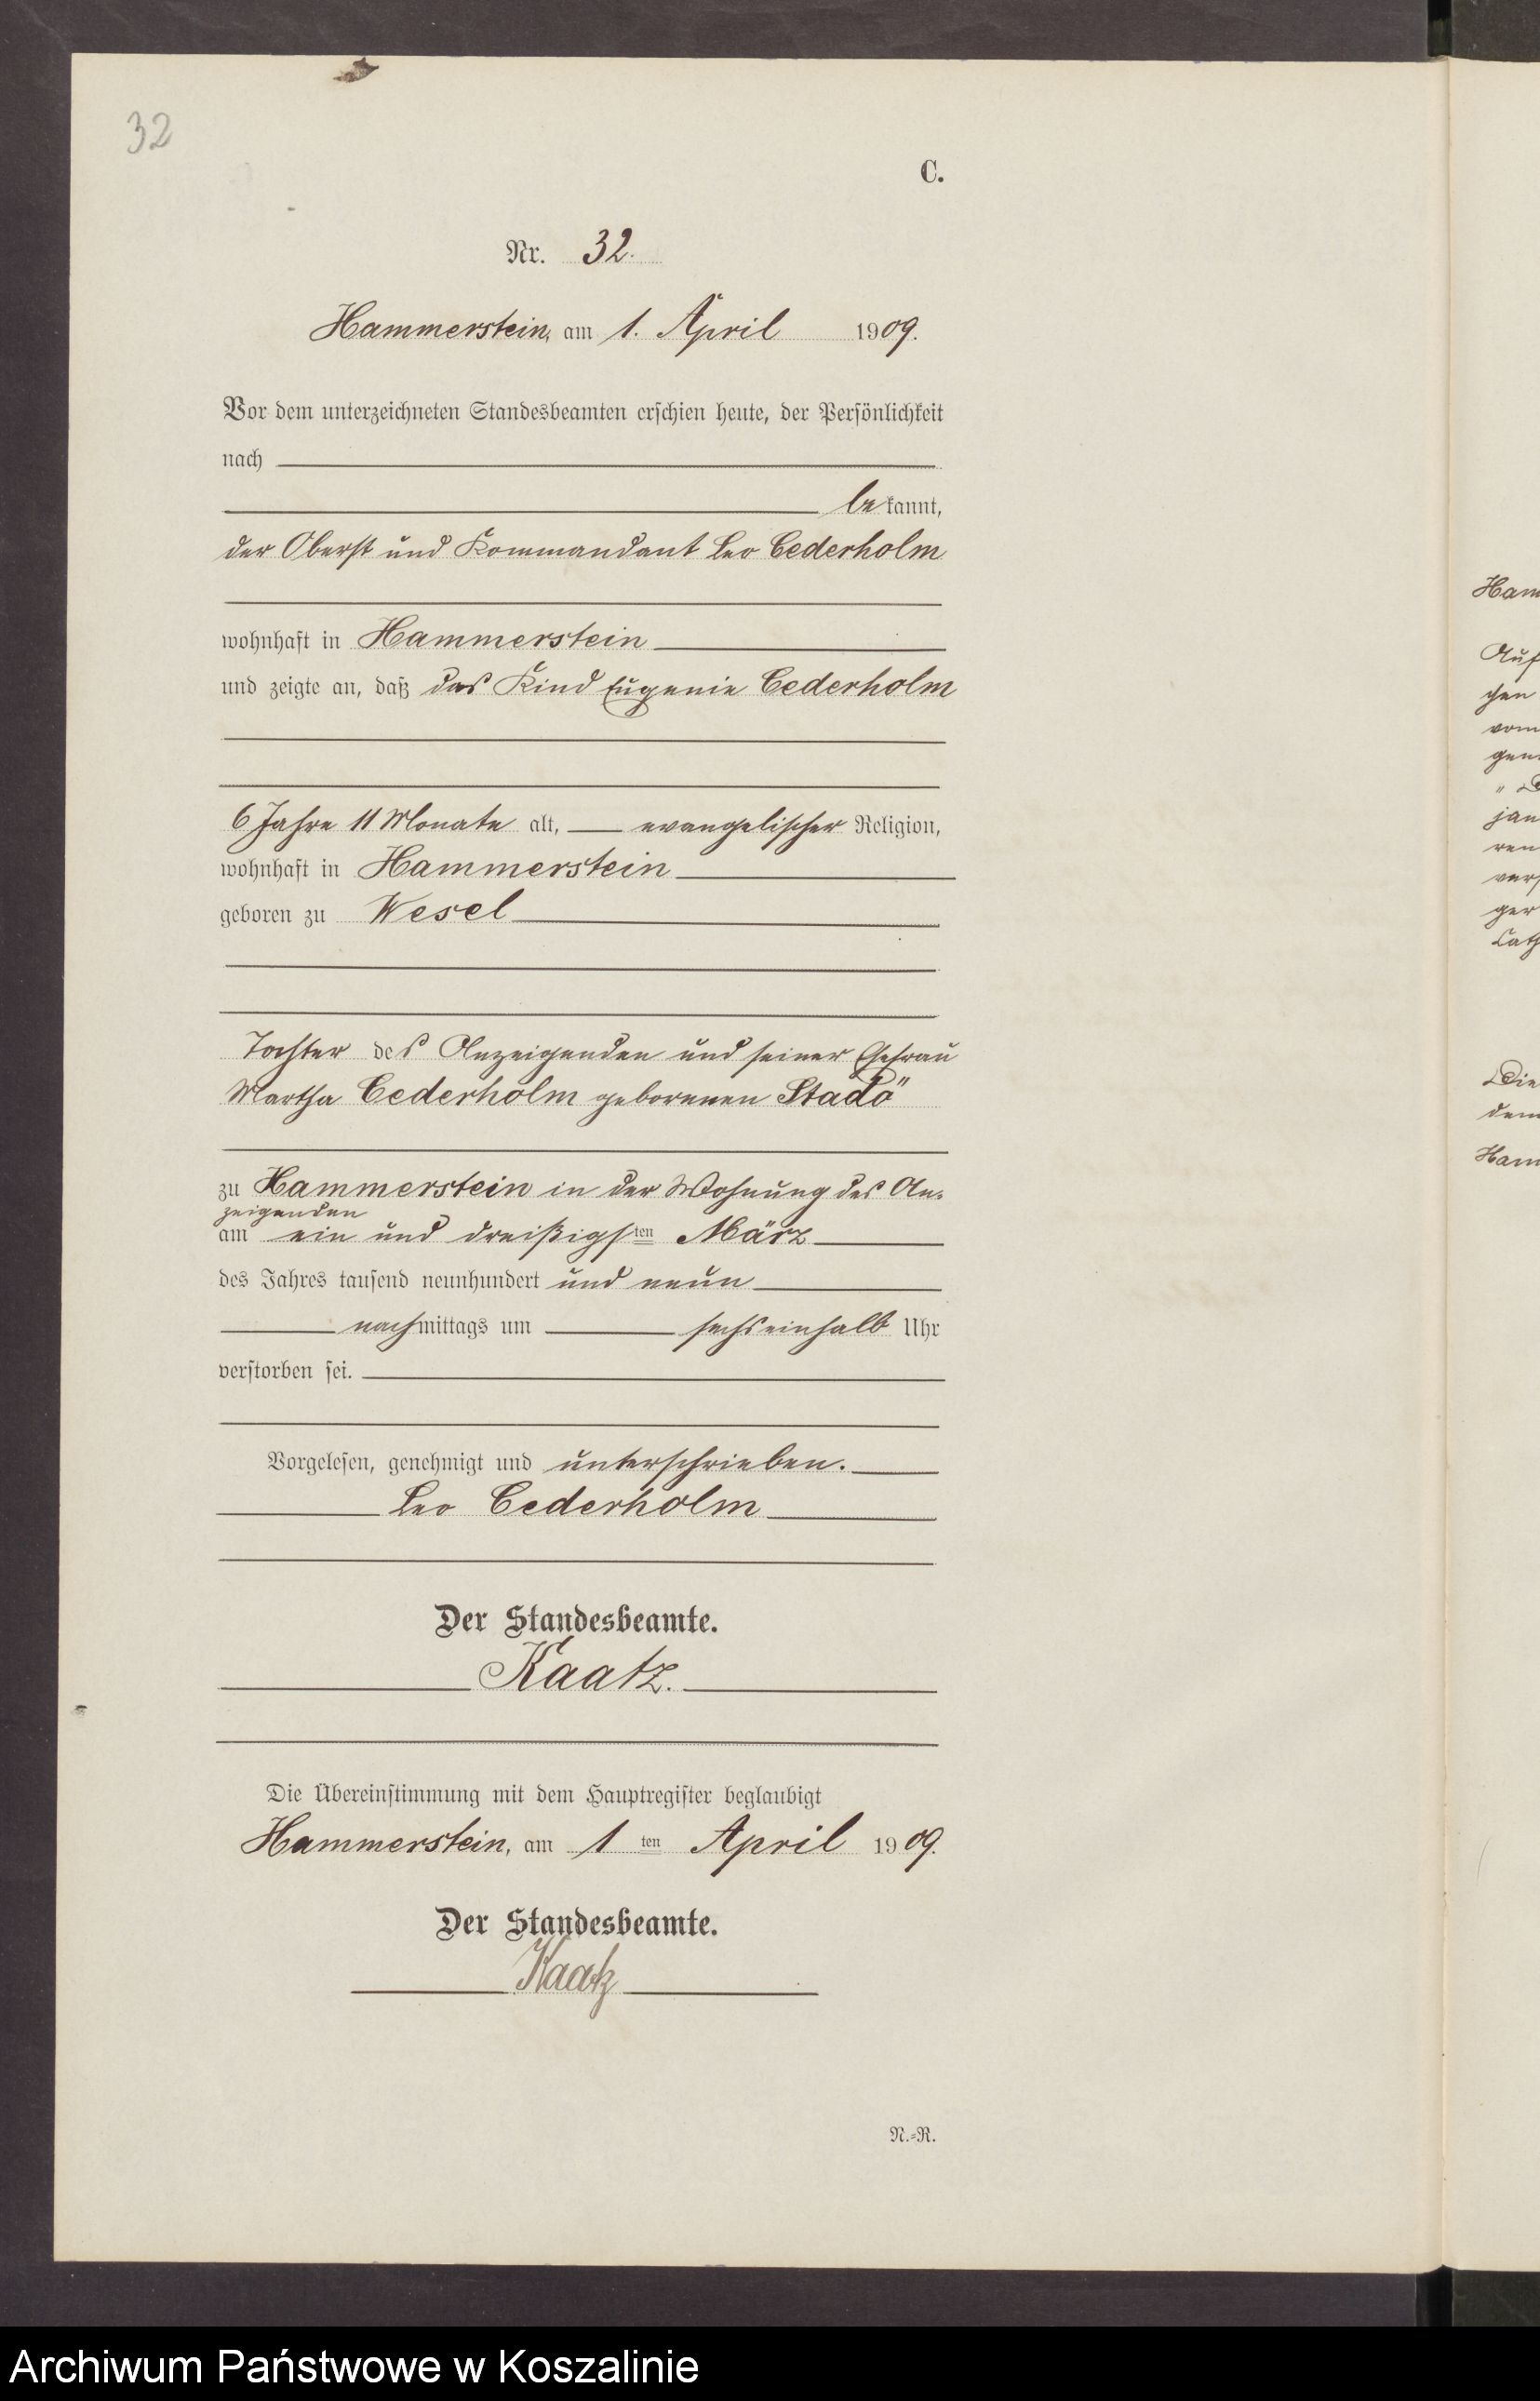 32
C.
Nr. 32.
Hammerstein, am 1. April 1909.
Vor dem unterzeichneten Standesbeamten erschien heute, der Persönlichkeit
nach
bekannt,
der Oberst und Kommandant Leo Cederholm
wohnhaft in Hammerstein
und zeigte an, daß das Kind Eugenie Cederholm
6 Jahre 11 Monate alt, evangelischer Religion,
wohnhaft in Hammerstein
geboren zu Wesel
Tochter des Anzeigenden und seiner Ehefrau
Martha Cederholm geborenen
zu Hammerstein in der Wohnung des An-
zeigenden
am ein und dreißigsten März
des Jahres tausend neunhundert und neun
nachmittags um sechseinhalb Uhr
verstorben sei.
Vorgelesen, genehmigt und unterschrieben.
Leo Cederholm
Der Standesbeamte.
Kaatz.
Die Übereinstimmung mit dem Hauptregister beglaubigt
Hammerstein, am 1ten April 1909.
Der Standesbeamte.
Kaatz
N.=R.
Ham
Auf
vom
Die
dem
Ham
Archiwum Państwowe w Koszalinie